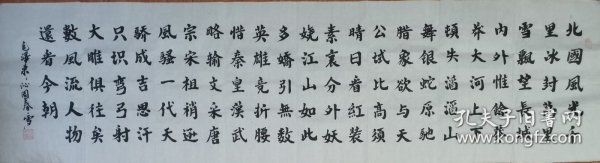 北國風光千
里冰封萬里
雪飄望長城
内外惟餘莽
莽大河上下
頓失滔滔山
舞銀蛇原馳
臘象欲與天
公試比高須
晴日看紅裝
素裹分外妖
嬈江山如此
多嬌引無數
英雄競折腰
惜秦皇漢武
略輸文采唐
宗宋祖稍遜
風騷一代天
驕成吉思汗
只識彎弓射
大雕俱往矣
數風流人物
還看今朝
毛澤東沁園春雪
孔夫子旧书网